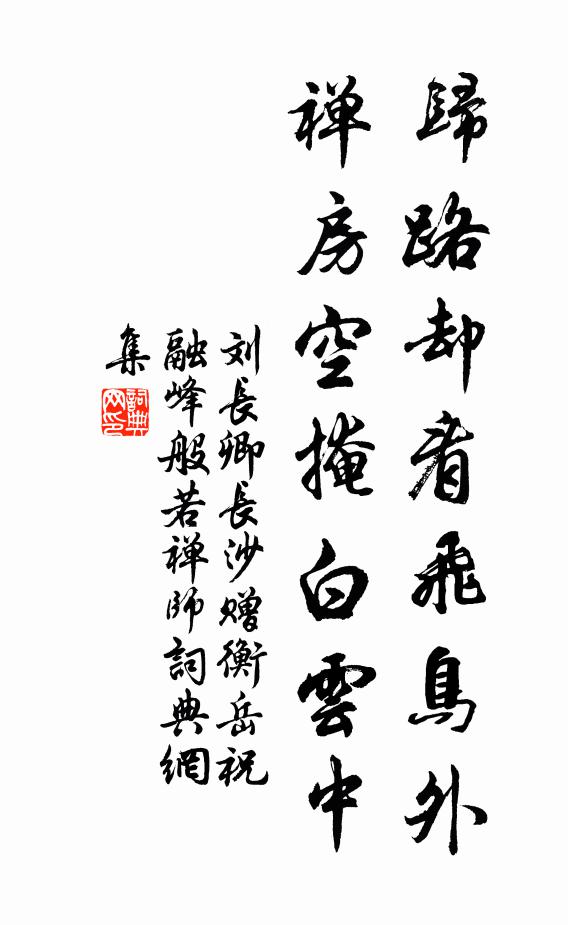 歸路却看飛鳥外
禅房空掩白雲中
刘長卿長沙赠衡岳祝
融峰般若禅師詞典網
集
詞典
网印